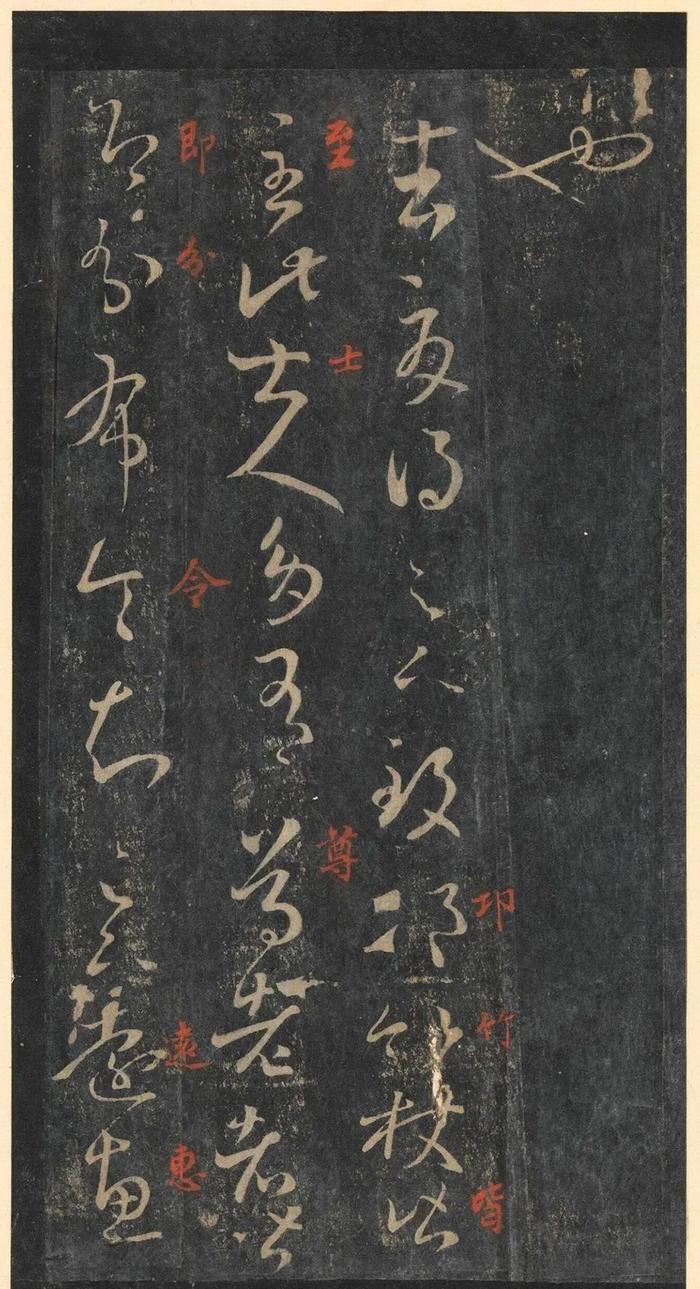 也
去夏得足下致邛竹杖皆
邛
竹
皆
至此士人多有尊老者皆
至
士
尊
即分布令知足下遠惠
即
分
令
遠
惠